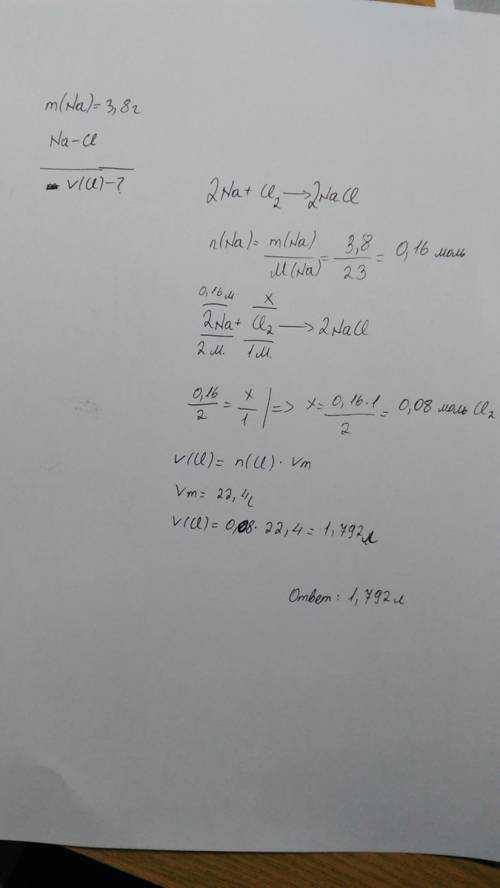 m(Na)=3,8г
Na-Cl
V(Cl)-?
2Na+Cl₂→2NaCl
n(Na)= m(Na)/M(Na) = 3,8/23 = 0,16 моль
0,16м x
2Na+Cl₂→2NaCl
2м. 1м.
0,16/2 = x/1 |=> x= 0,16·1/2 = 0,08 моль Cl₂
V(Cl)= n(Cl)·Vm
Vm= 22,4
V(Cl)=0,08·22,4=1,792л
Ответ: 1,792л